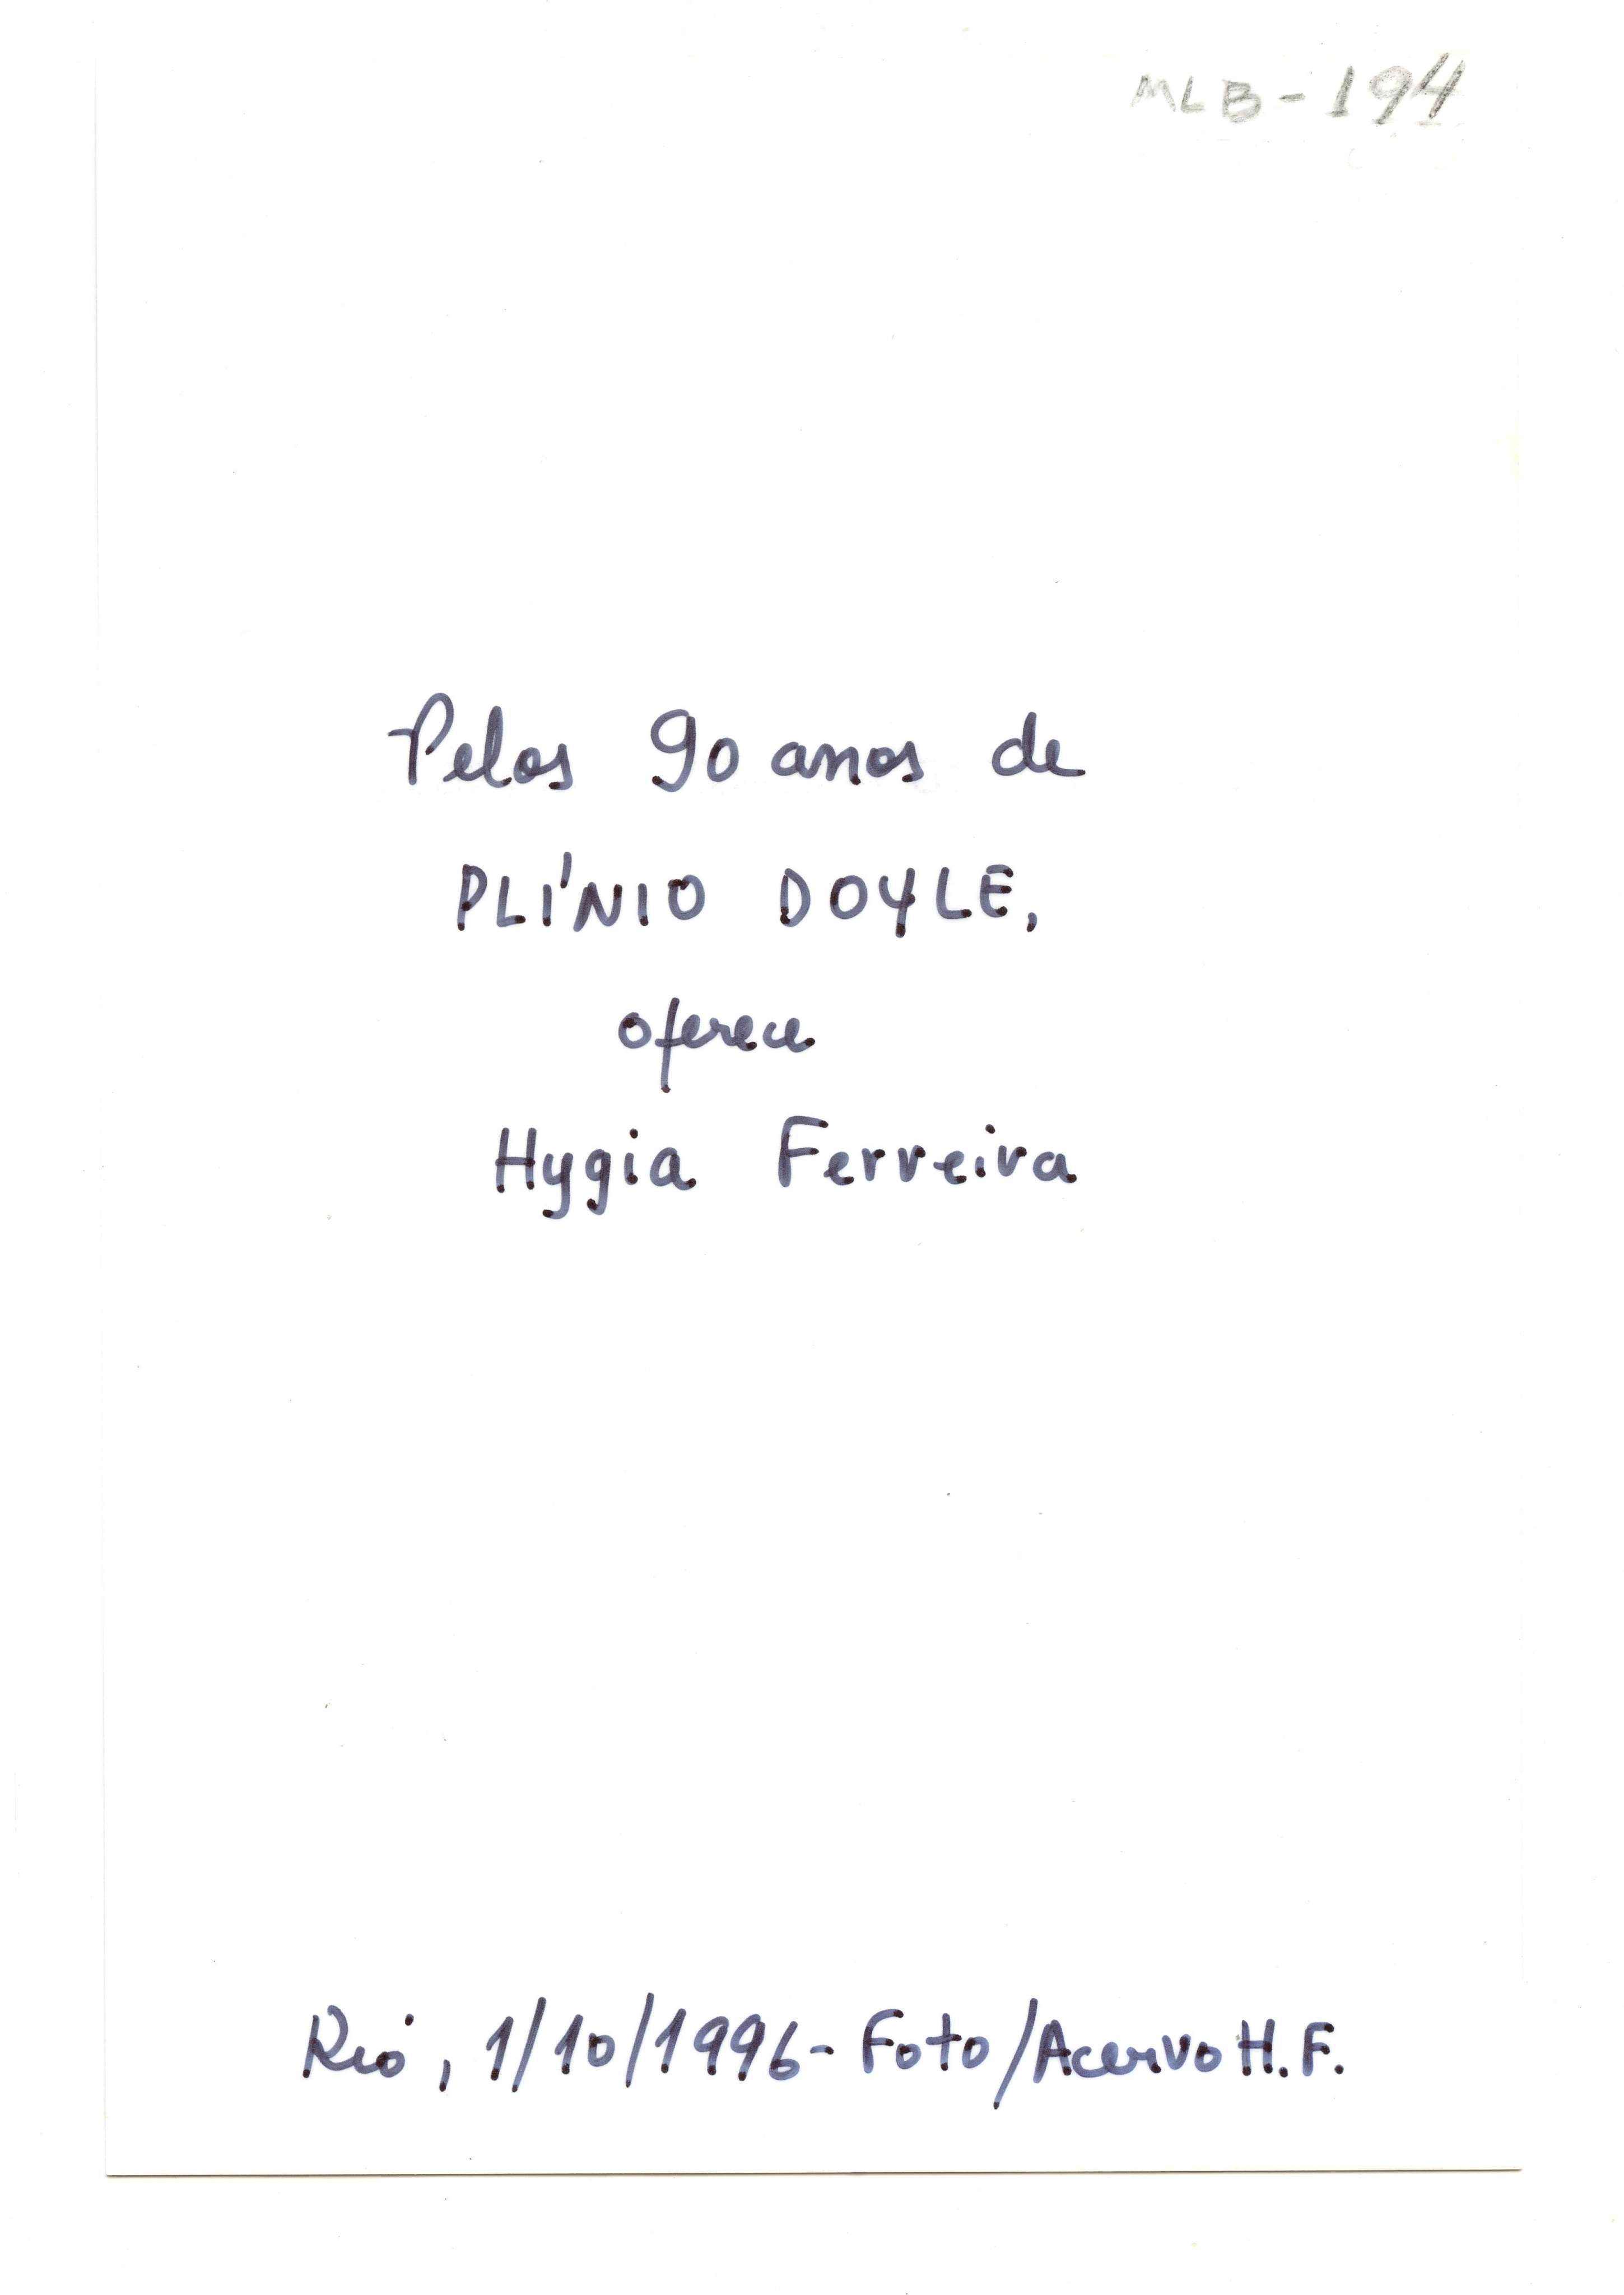 MLB-194
Pelos 90 anos de
PLÍNIO DOYLE,
oferece
Hygia Ferreira
Rio, 1/10/1996- Foto/Acervo H.F.